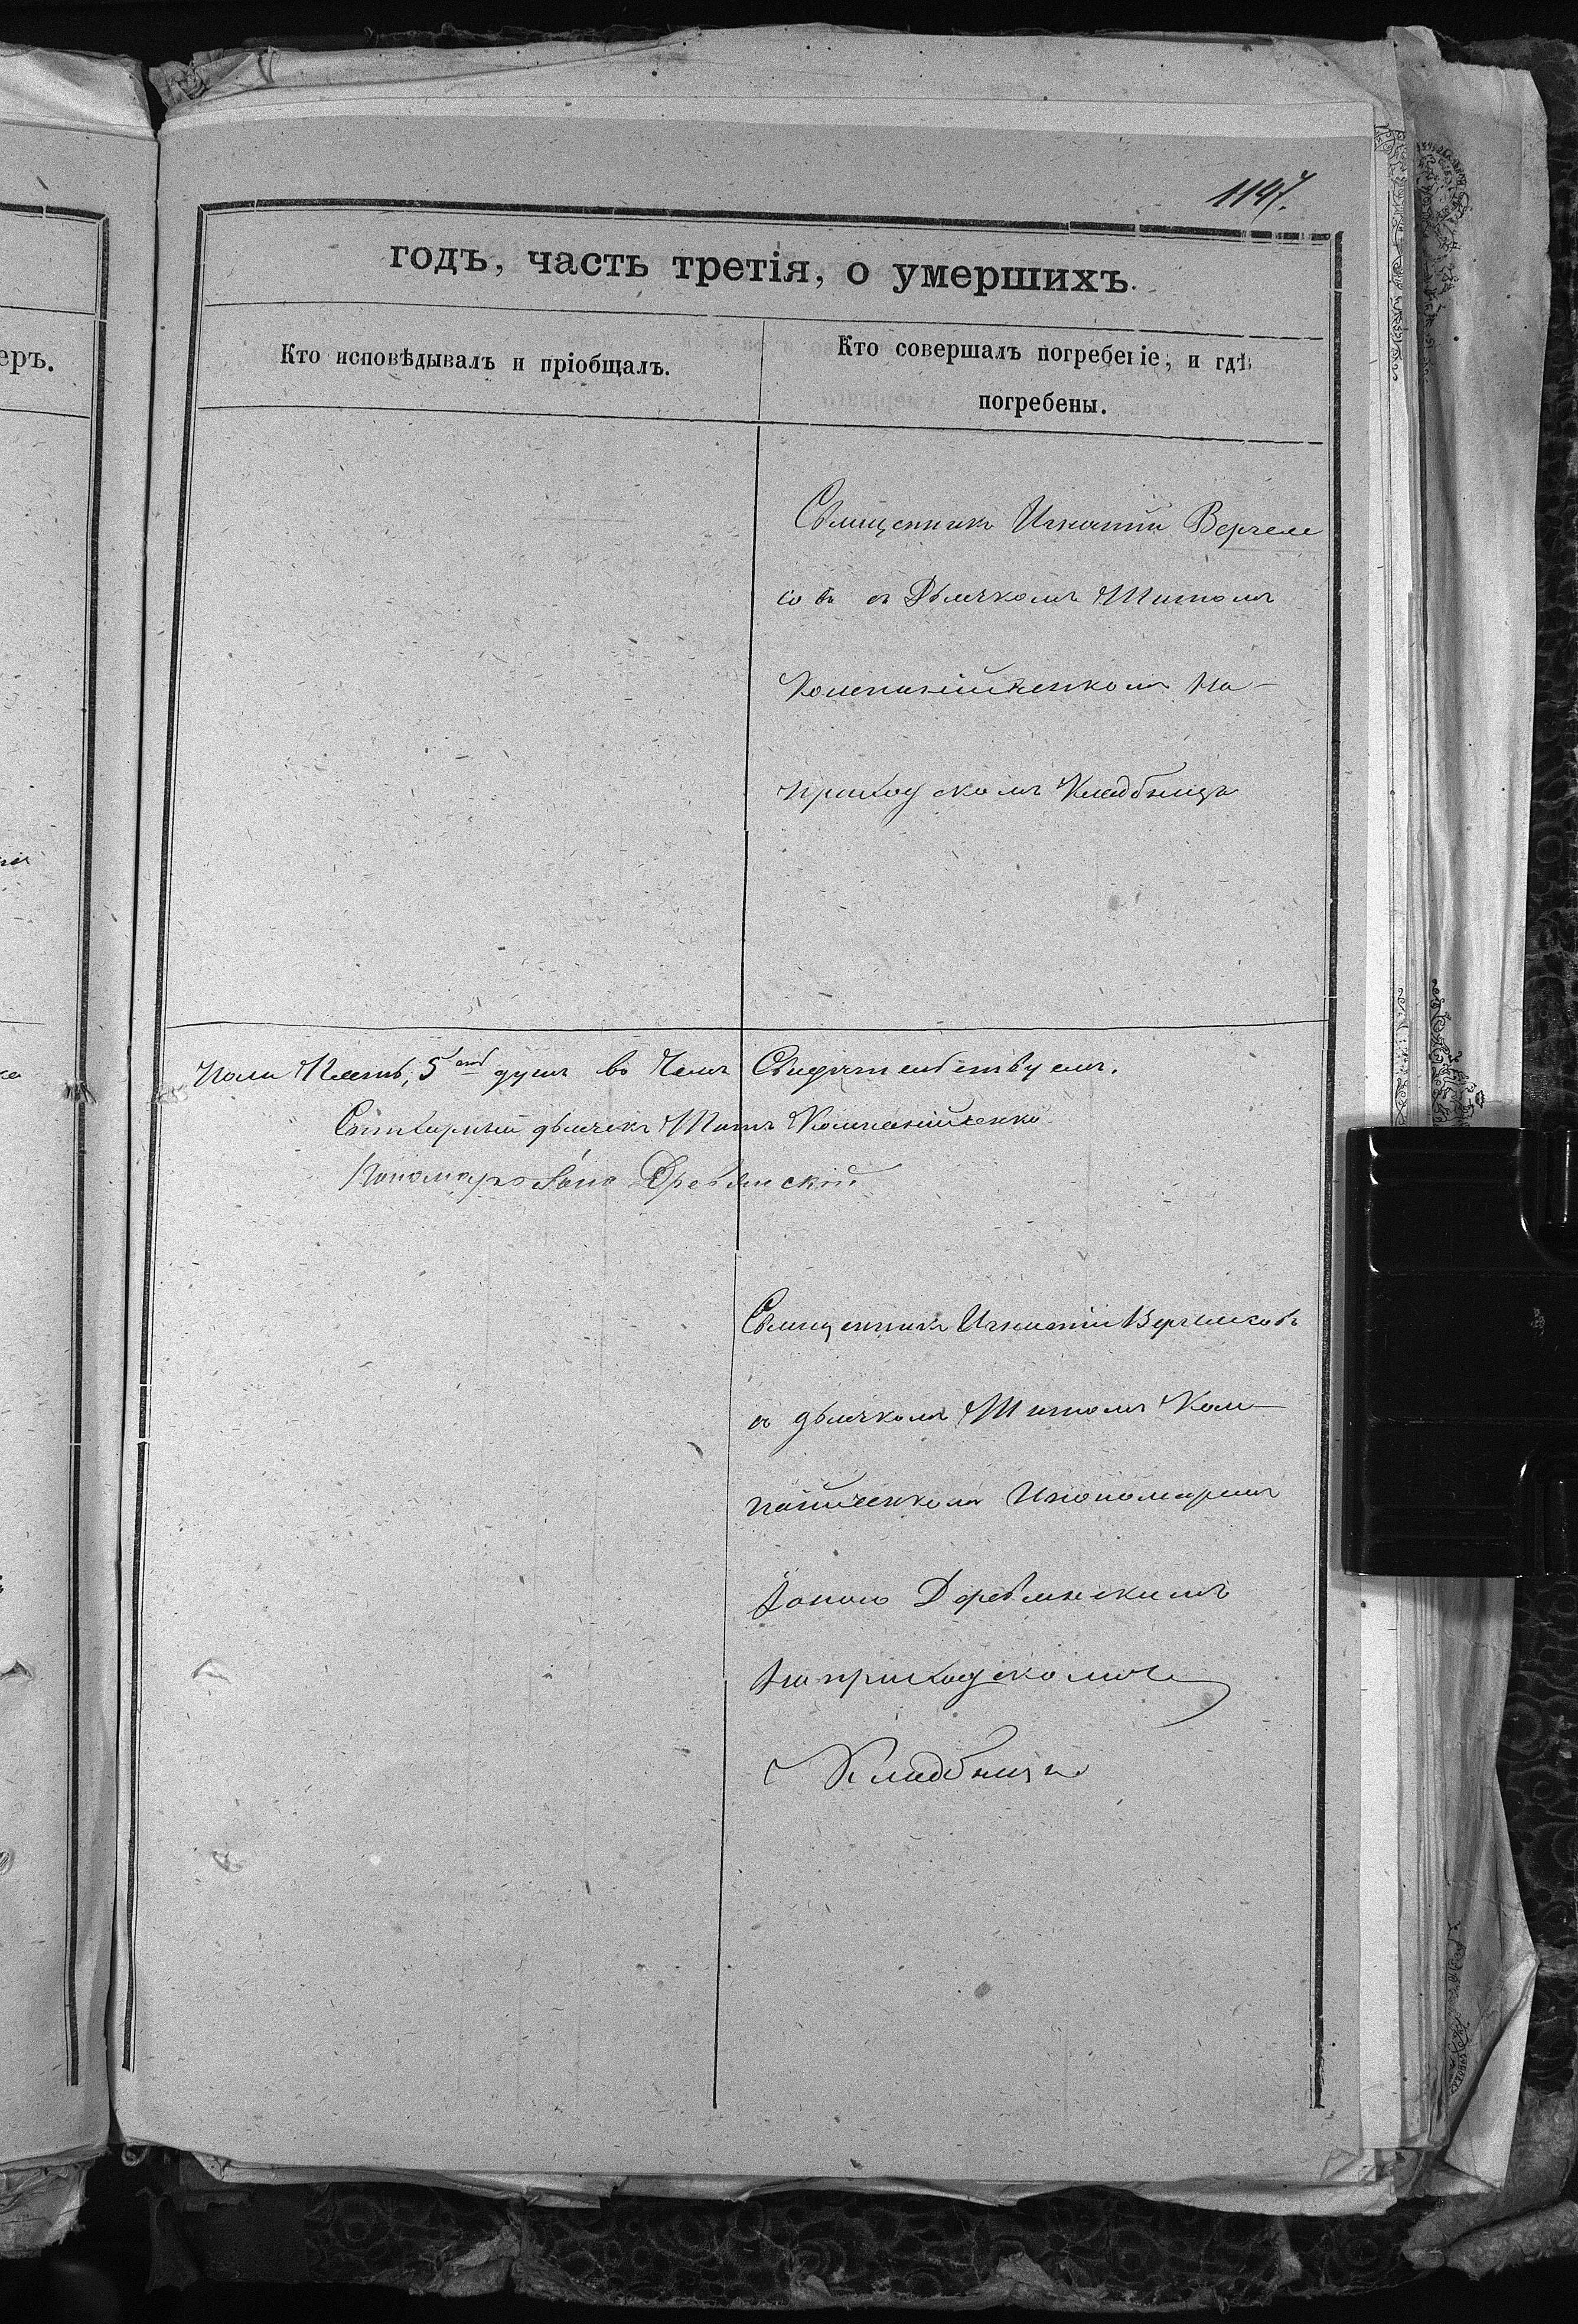 1197.
годъ, часть третія, о умершихъ.
Кто исповѣдывалъ и пріобщалъ.
Кто совершалъ погребеніе, и гдѣ
погребены.
еръ.
Священникъ Игнатій Вергеле
совъ съ Дьячкомъ Титомъ
Компанійченкомъ На-
приходскомъ Кладбищѣ
пола Пять, 5 душъ въ чемъ Свидѣтельствуемъ.
Стихарный дьячекъ Титъ Компанійченко
Пономарь Іона Древянскій
Священникъ Игнатій Вергелесовъ
съ дьячкомъ Титомъ Ком-
панійченкомъ Ипономаремъ
Іоною Деревянскимъ
На приходскомъ
Кладбищѣ